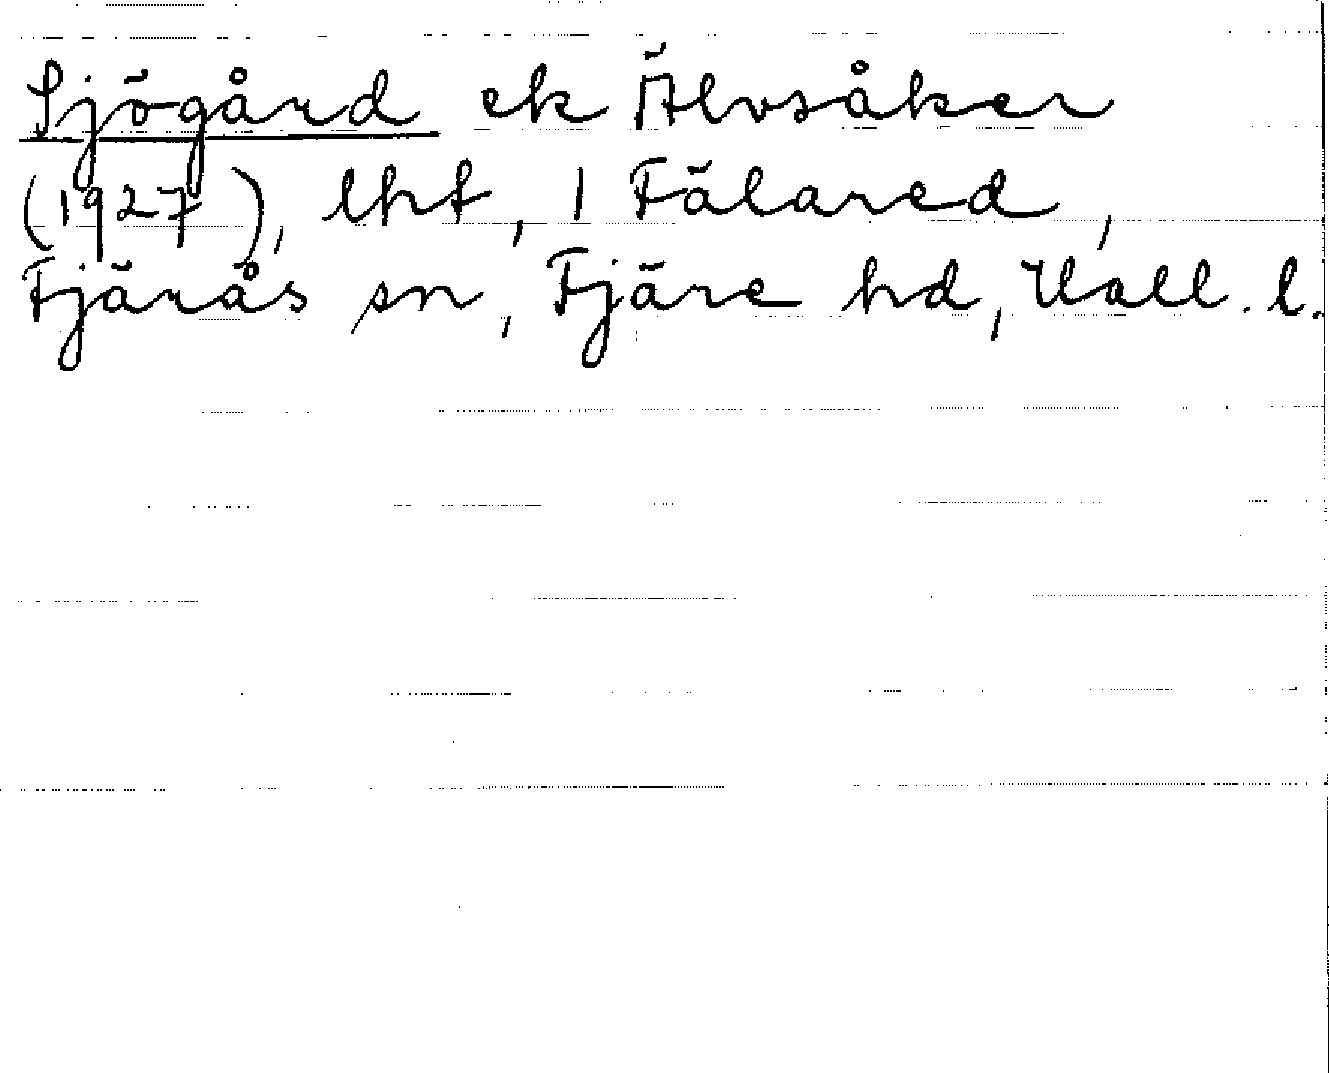 Sjögård ek Älvsåker
(1927), lht, 1 Fälared,
Fjärås sn, Fjäre hd, Hall. l.